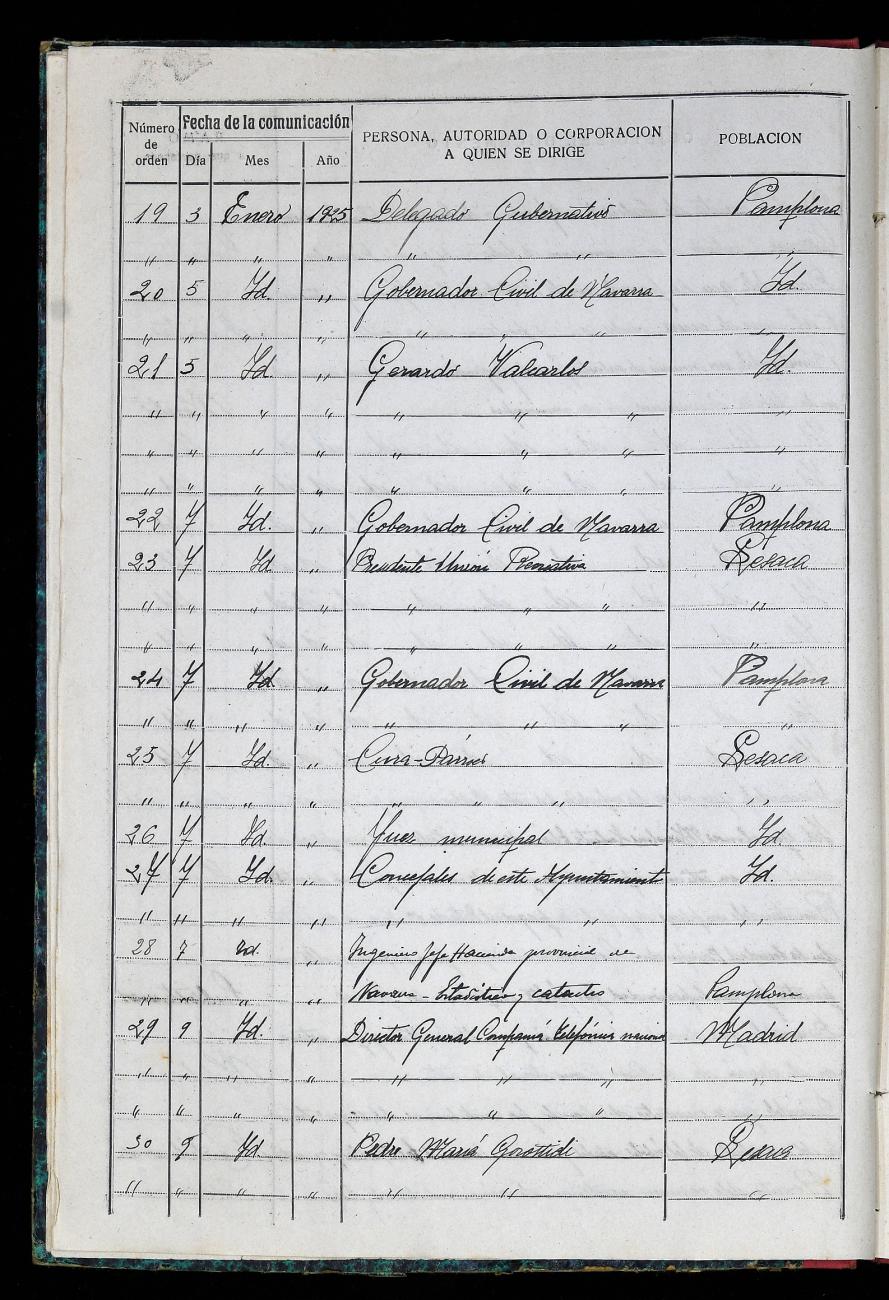 Número de orden Fecha de la comunicación PERSONA, AUTORIDAD O CORPORACION A QUIEN SE DIRIGE POBLACION
Día Mes Año
19 3 Enero 1925 Delegado Gubernativo Pamplona
" " " " " " "
20 5 Id. " Gobernador Civil de Navarra Id.
" " " " " " " "
21 5 Id. " Gerardo Valcarlos Id.
" " " " " " " "
" " " " " " " "
" " " " " " " "
22 7 Id. " Gobernador Civil de Navarra Pamplona
23 7 Id " Presidente Unión Recreativa Lesaca
" " " " " " " "
" " " " " " " "
24 7 Id " Gobernador Civil de Navarra Pamplona
" " " " " " " "
25 7 Id. " Cura-Párroco Lesaca
" " " " " " " "
26 7 Id. " Juez municipal Id.
27 7 Id. " Concejales de este Ayuntamiento Id.
" " " " " " "
28 7 Id. " Ingeniero Jefe Hacienda provincial de
" " " " Navarra - Estadística y catastro Pamplona
29 9 Id. " Director General Compañía Telefónica nacional Madrid
" " " " " " " "
" " " " " " " "
30 9 Id Pedro María Gorostidi Lesaca
" " " " " " "